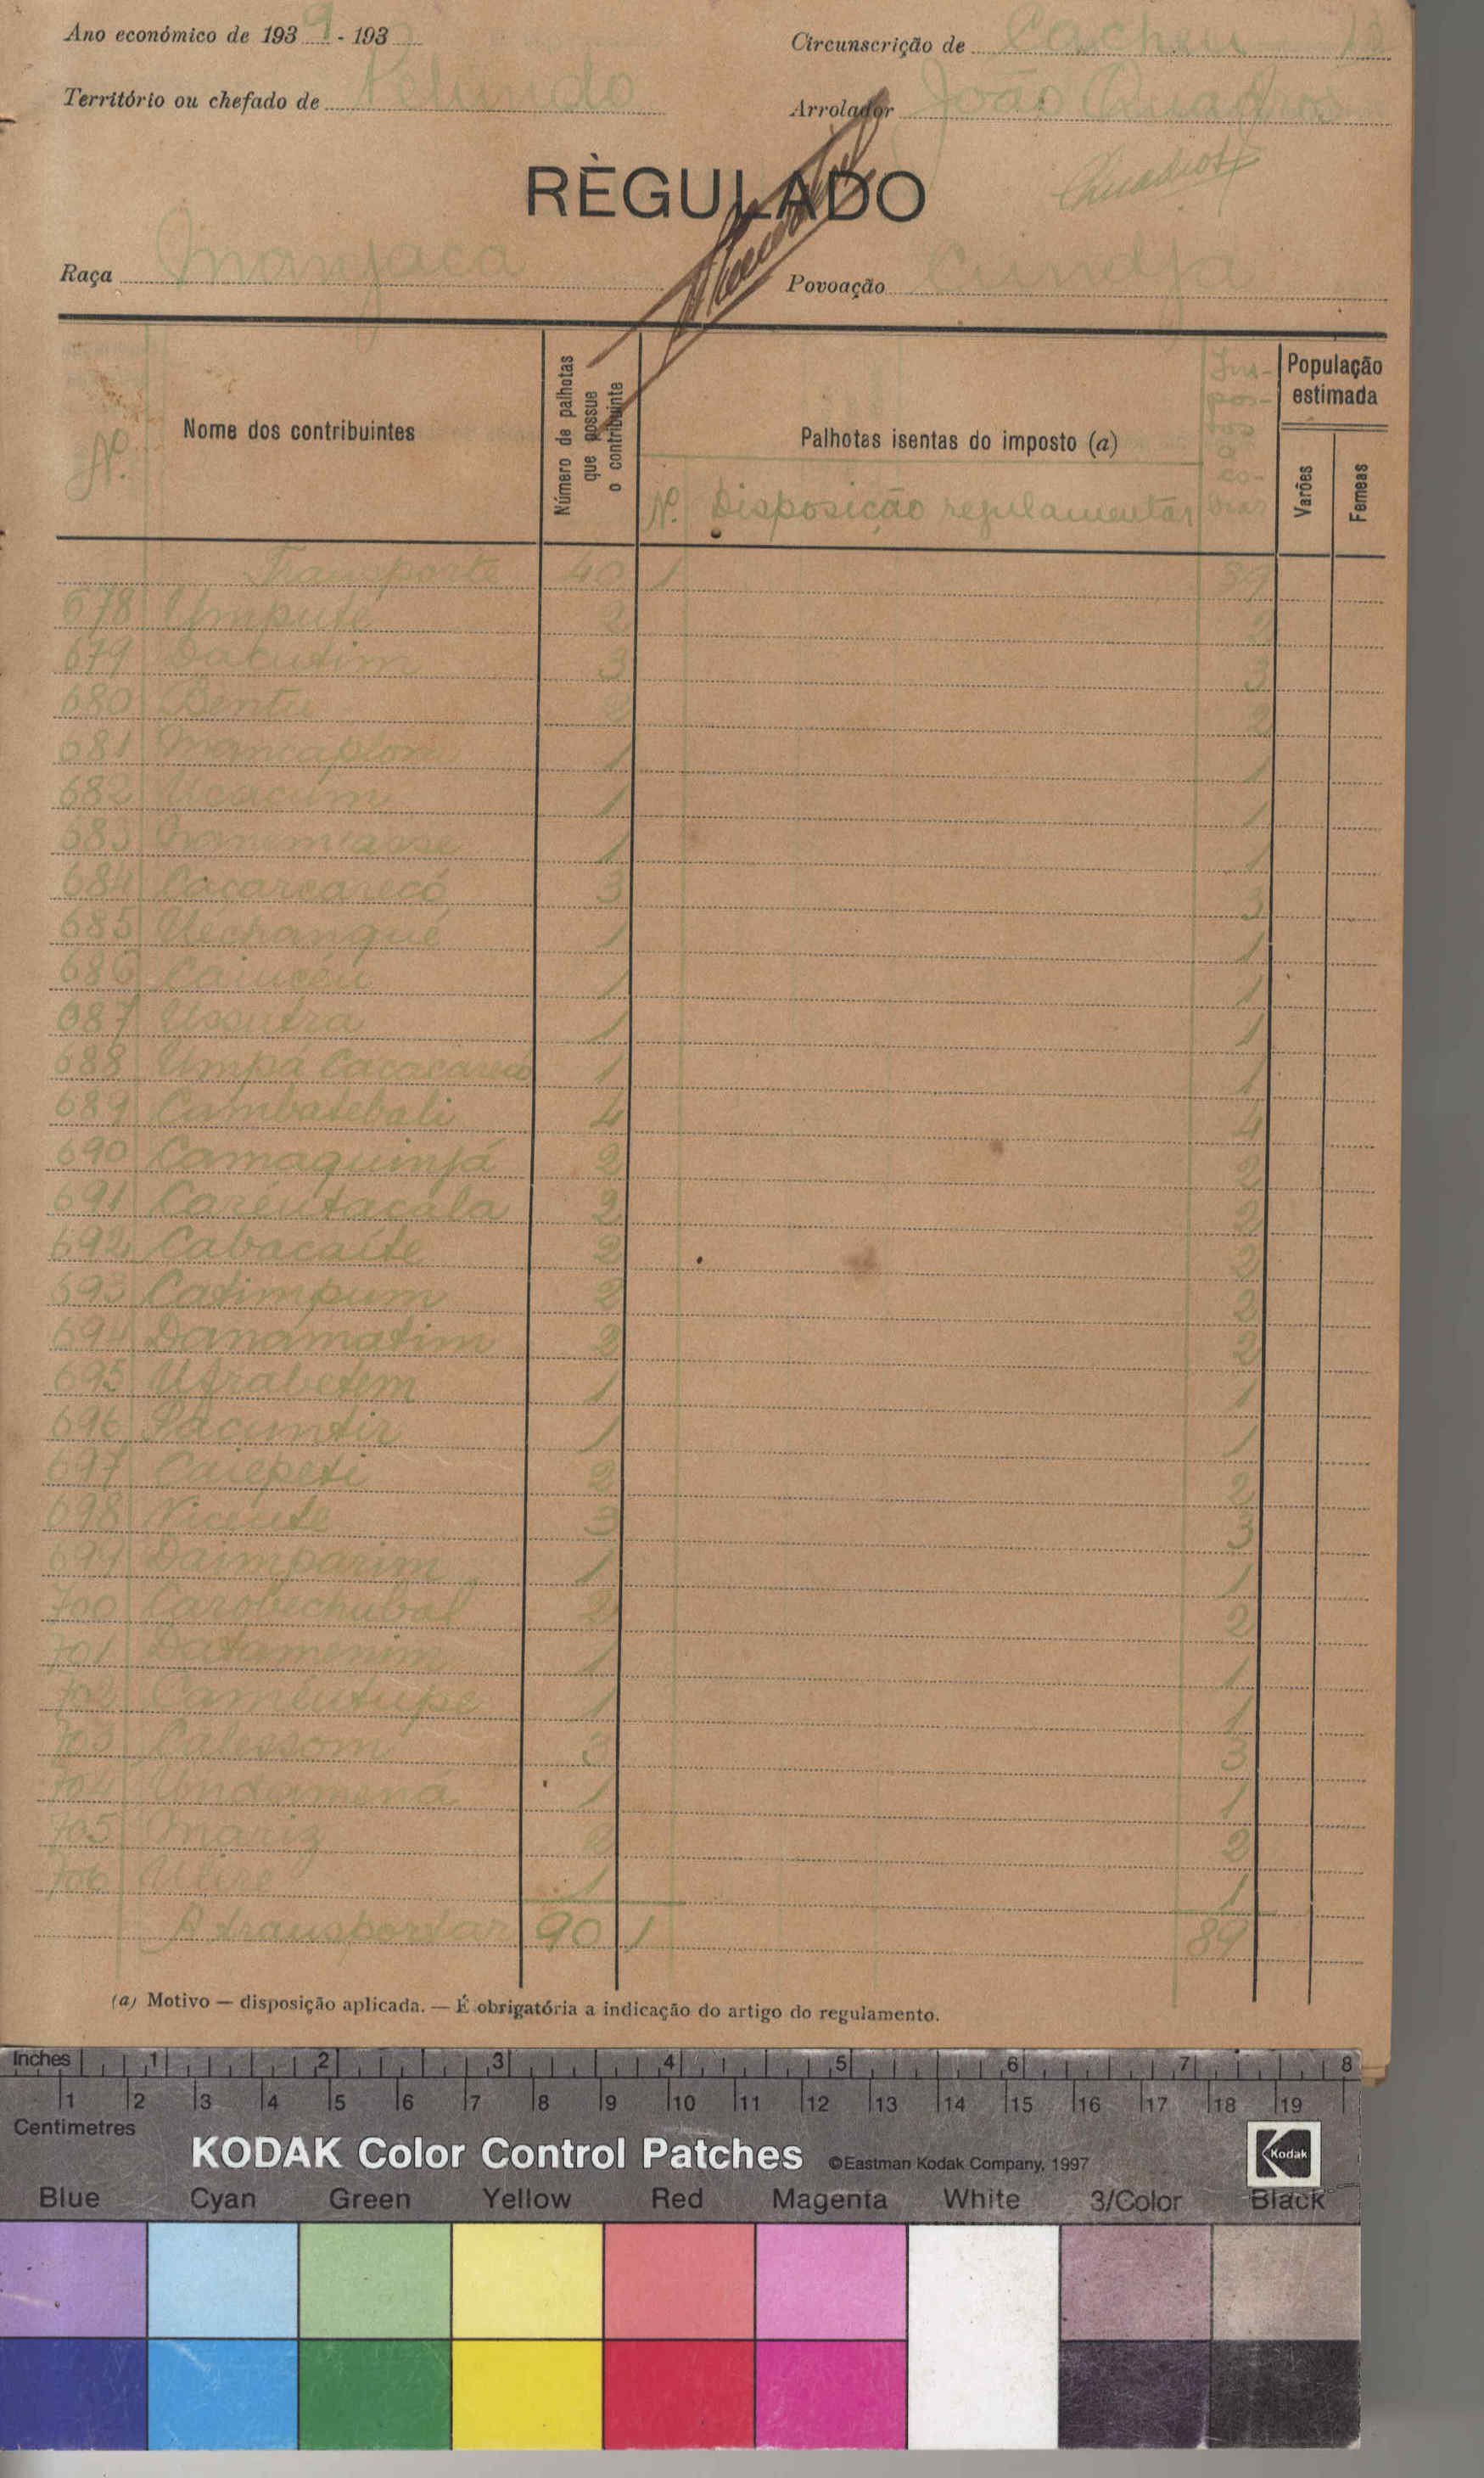 Ano económico de 1939 - 193
Circunscrição de Cacheu 13
Território ou chefado de
Arrolador João Quadros
RÈGULADO
Quadros
Raça Manjaca
Povoação
N.º
Nome dos contribuintes
Número de palhotas que possue o contribuinte
Palhotas isentas do imposto (a)
N.º Disposição regulamentar
Impostos a cobrar
População estimada
Varões
Femeas
Transporte 40 1 39
678 Umpute 2 2
679 Dacutim 3 3
680 Bentu 2 2
681 1 1
682 Ucacum 1 1
683 1 1
684 Cacarcarecó 3 3
685 Uéchangué 1 1
686 1 1
687 Ussutra 1 1
688 Umpá Cacacarecó 1 1
689 Cambatebali 4 4
690 Camaquinjá 2 2
691 Caréntacála 2 2
692 Cabacaíte 2 2
693 Catimpum 2 2
694 Danamatim 2 2
695 Ufrabetem 1 1
696 Pacuntir 1 1
697 Caiepeti 2 2
698 Vicente 3 3
699 Daimparim 1 1
700 Carobechubal 2 2
701 Datamenim 1 1
702 Caméntupe 1 1
703 Calessom 3 3
704 Undamená 1 1
705 Mariz 2 2
706 Ulire 1 1
A transportar 90 1 89
(a) Motivo — disposição aplicada. — É obrigatória a indicação do artigo do regulamento.
Inches 1 2 3 4 5 6 7 8
1 2 3 4 5 6 7 8 9 10 11 12 13 14 15 16 17 18 19
Centimetres
KODAK Color Control Patches ©Eastman Kodak Company, 1997 Kodak
Blue Cyan Green Yellow Red Magenta White 3/Color Black